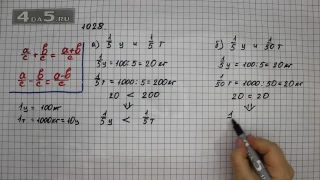 4DA5.RU
1028
a/c + b/c = a+b/c
a/c - b/c = a-b/c
1ц = 100кг
1т = 1000кг = 10ц
а) 1/5 ц и 1/5 т
1/5 ц = 100:5 = 20кг
1/5 т = 1000:5 = 200кг
20 < 200
⇓
1/5 ц < 1/5 т
б) 1/5 ц и 1/50 т
1/5 ц = 100:5 = 20кг
1/50 т = 1000:50 = 20кг
20 = 20
⇓
1